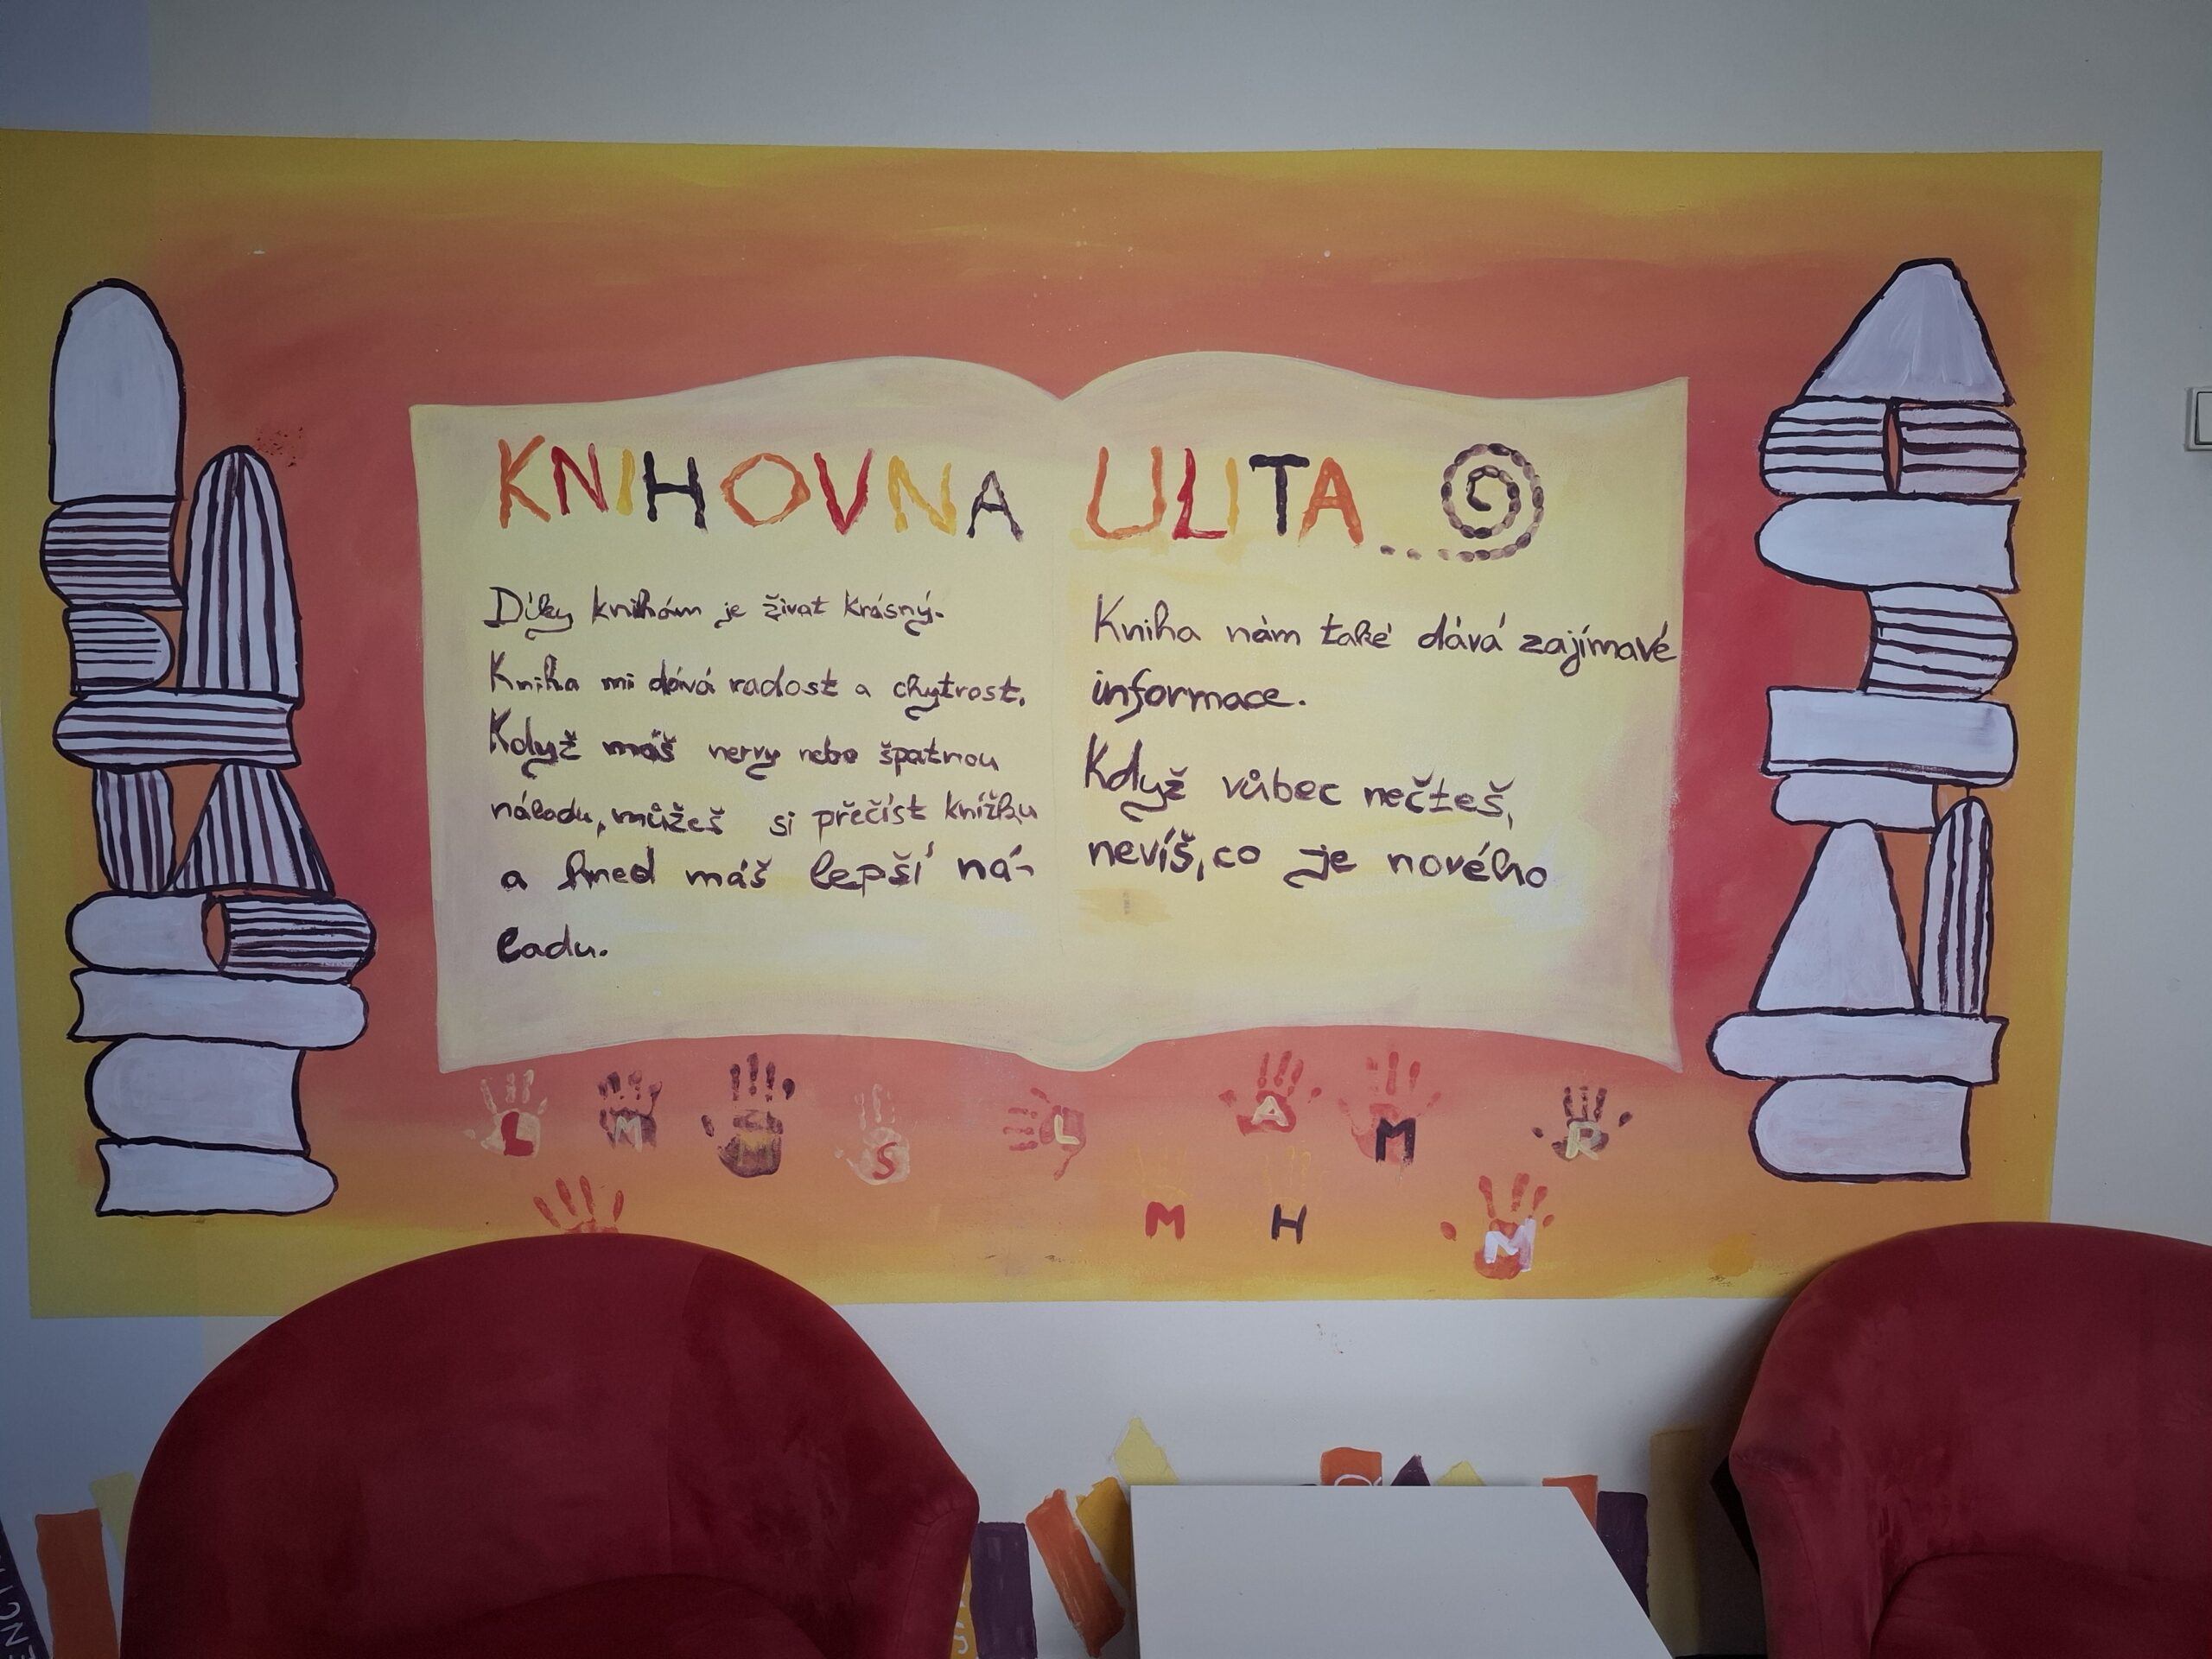 KNIHOVNA ULITA
Díky knihám je život krásný.
Kniha mi dává radost a chytrost.
Když máš nervy nebo špatnou
náladu, můžeš si přečíst knížku
a hned máš lepší ná-
ladu.
Kniha nám také dává zajímavé
informace.
Když vůbec nečteš,
nevíš, co je nového
L M S L A M R
M H M